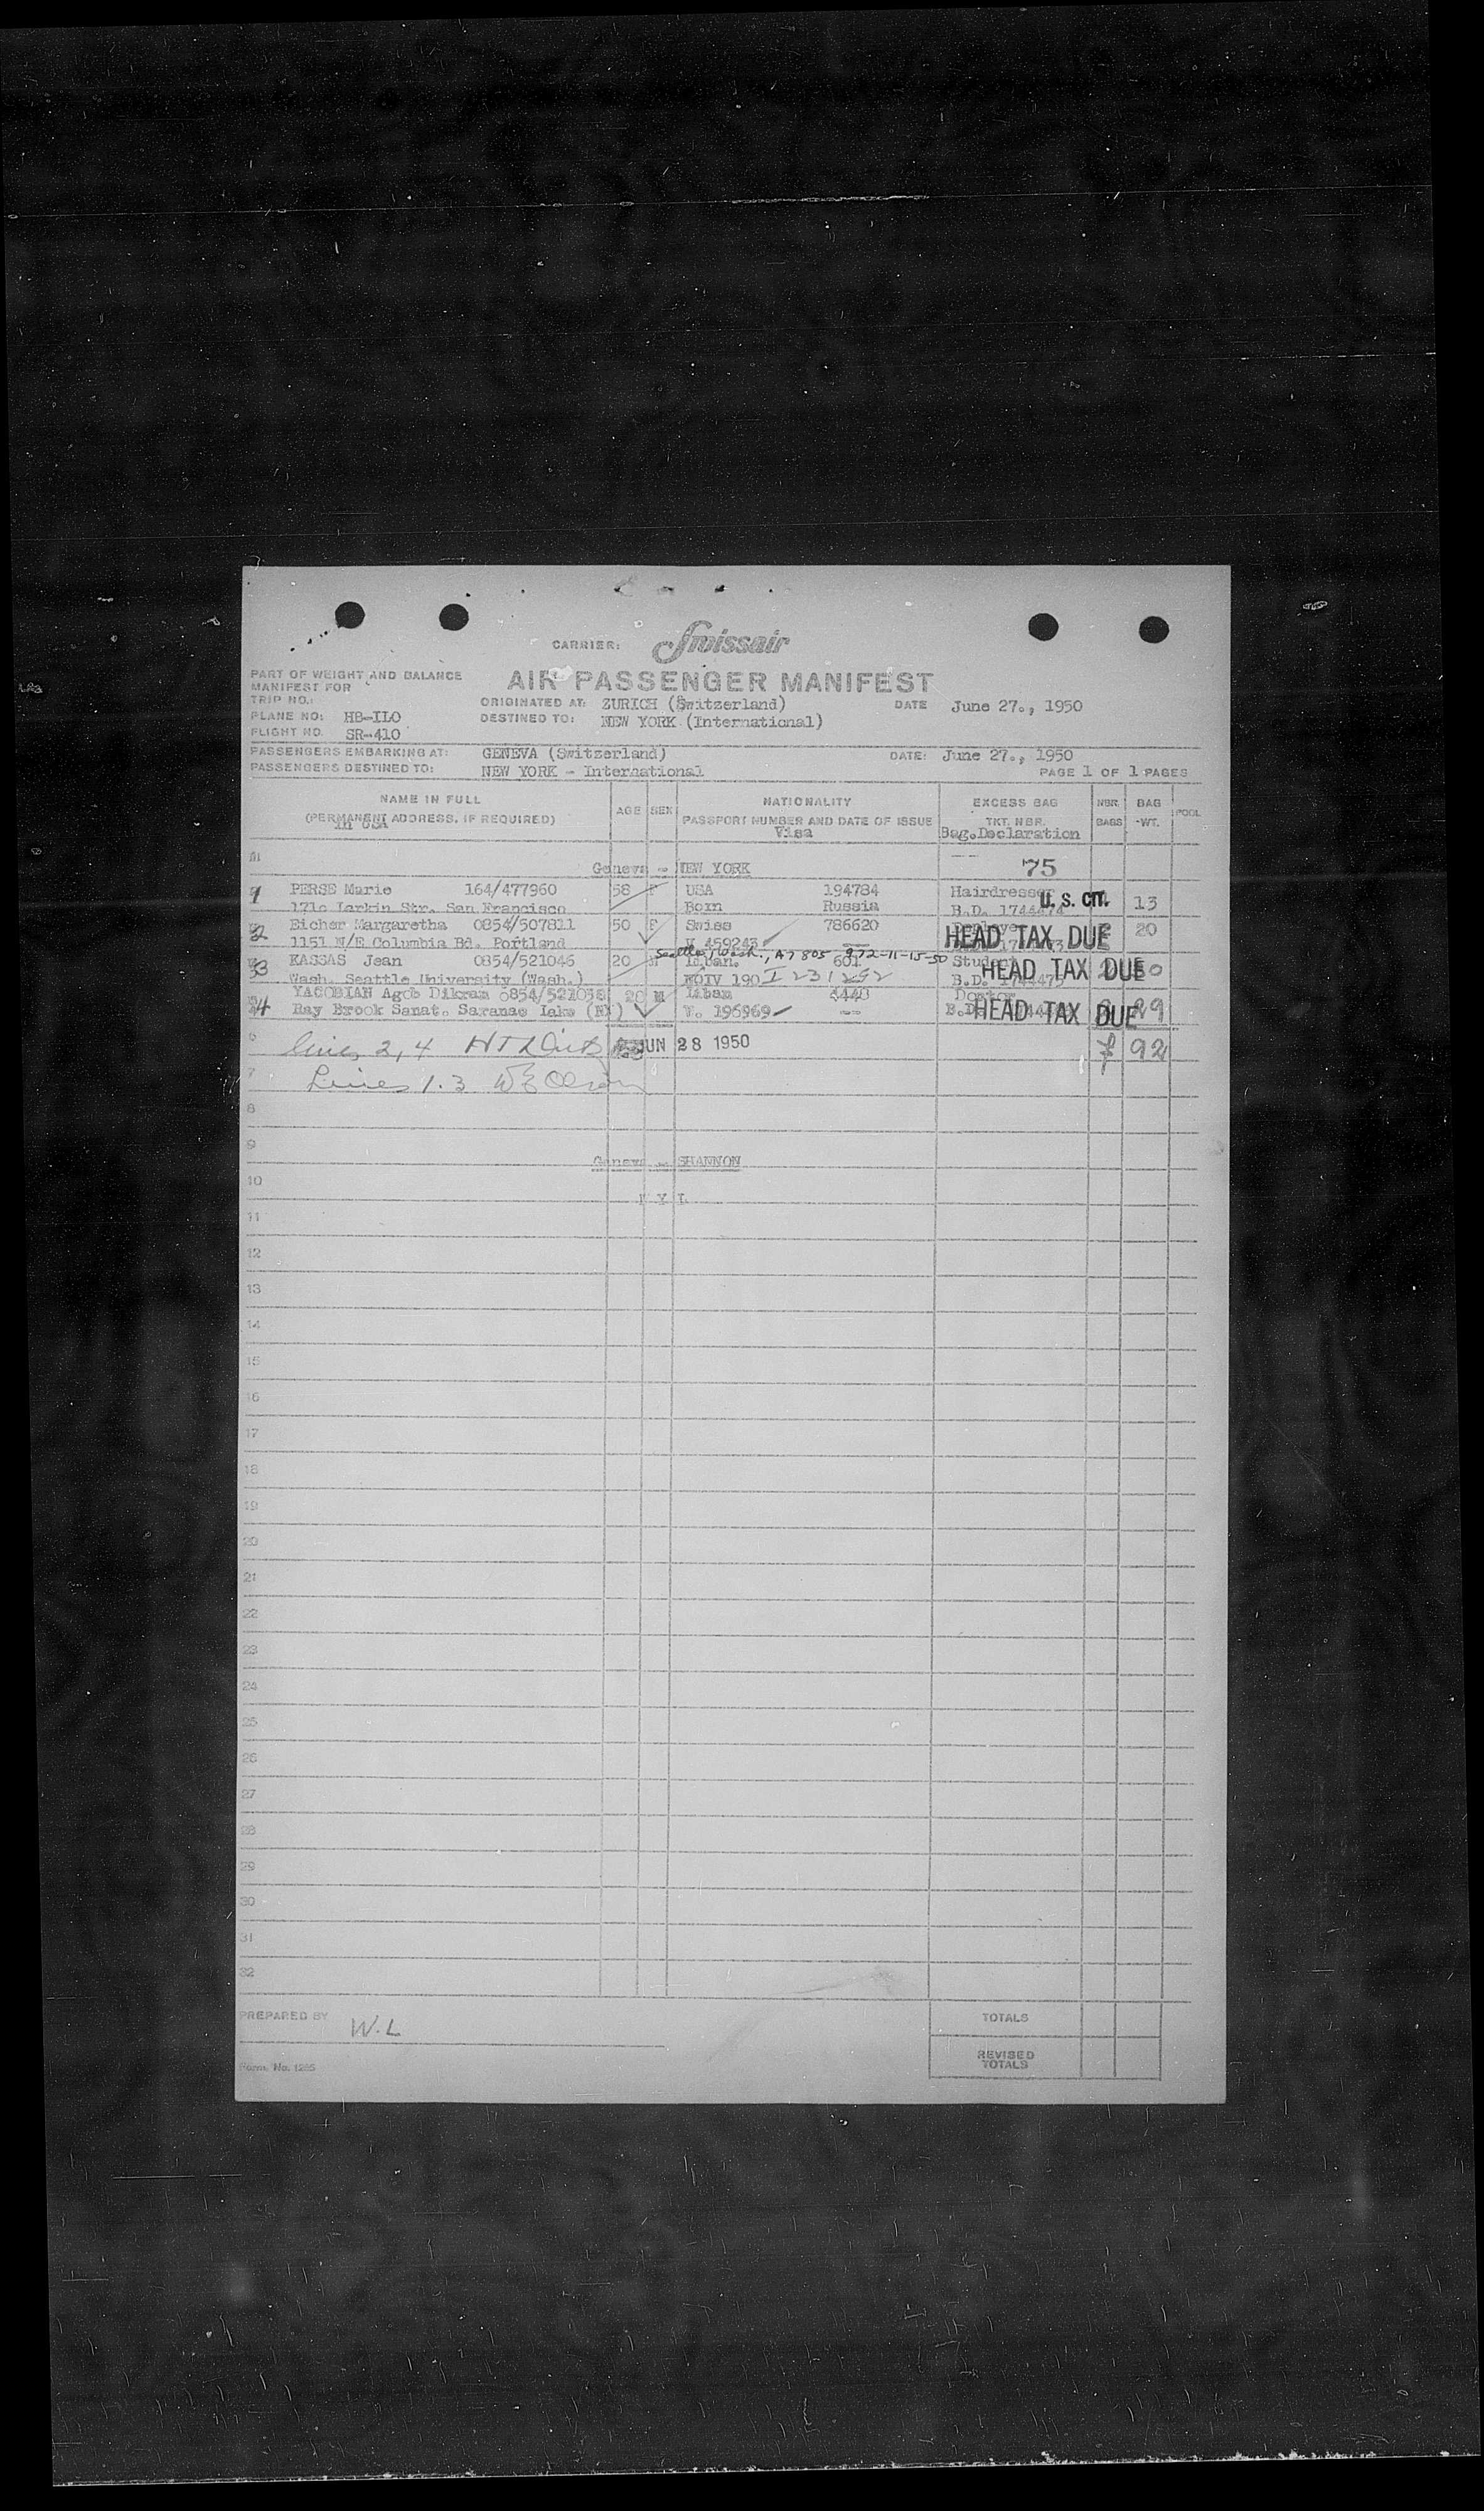 CARRIER: Swissair
PART OF WEIGHT AND BALANCE
MANIFEST FOR
AIR PASSENGER MANIFEST
TRIP NO.:
ORIGINATED AT: ZURICH (Switzerland) DATE June 27., 1950
PLANE NO: HB-ILO
DESTINED TO: NEW YORK (International)
FLIGHT NO. SR-410
PASSENGERS EMBARKING AT: GENEVA (Switzerland) DATE: June 27., 1950
PASSENGERS DESTINED TO: NEW YORK - International
PAGE 1 OF 1 PAGES
NAME IN FULL AGE SEX NATIONALITY EXCESS BAG NBR. BAG
(PERMANENT ADDRESS, IF REQUIRED) PASSPORT NUMBER AND DATE OF ISSUE TKT. NBR. BAGS WT. POOL
in USA Visa Bag.Declaration
Geneva - NEW YORK 75
1 PERSE Marie 164/477960 58 F USA 194784 Hairdresser U.S. CIT. 13
Larkin Str. San Francisco Born Russia B.D. 1744474
2 Eicher Margaretha 0854/507811 50 F Swiss 786620 HEAD TAX DUE 20
1151 N/E Columbia Bd. Portland V 459243
Seattle, Wash., A7 805 972-11-15-50
3 KASSAS Jean 0854/521046 20 Liban. 601 Student HEAD TAX DUE
Wash. Seattle University (Wash.) NQIV 190 I 231292 B.D. 1744475
4 YACOBIAN Agob Dikram 0854/521038 28 M Liban 4440 Doctor HEAD TAX DUE 29
Ray Brook Sanat. Saranac Lake (NY) V. 196969 -- B.D.
6 lines 2, 4 JUN 28 1950 7 92
7 Lines 1.3 W E Olson
8
9
Geneva - SHANNON
10
11
12
13
14
15
16
17
18
19
20
21
22
23
24
25
26
27
28
29
30
31
32
PREPARED BY W.L
TOTALS
REVISED
TOTALS
Form. No. 1265